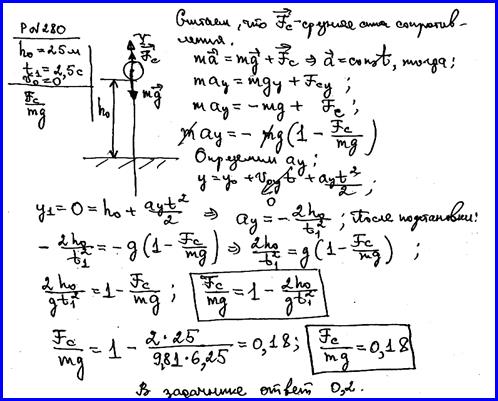 P № 280
h₀ = 25 м
t₁ = 2,5 с
v₀ = 0
F_c/mg
y
F⃗_c
mg⃗
h₀
Считаем, что F⃗_c - средняя сила сопротив-
ления.
ma⃗ = mg⃗ + F⃗_c ⇒ a⃗ = const, тогда:
ma_y = mg_y + F_cy ;
ma_y = - mg + F_c ;
ma_y = - mg (1 - F_c/mg)
Определим a_y ;
y = y₀ + v₀y t + a_y t²/2 ;
0
y₁ = 0 = h₀ + a_y t²/2 ⇒ a_y = - 2h₀/t₁² ; После подстановки:
- 2h₀/t₁² = - g (1 - F_c/mg) ⇒ 2h₀/t₁² = g (1 - F_c/mg) ;
2h₀/gt₁² = 1 - F_c/mg ; F_c/mg = 1 - 2h₀/gt₁²
F_c/mg = 1 - 2·25/9,81·6,25 = 0,18 ; F_c/mg = 0,18
В задачнике ответ 0,2.